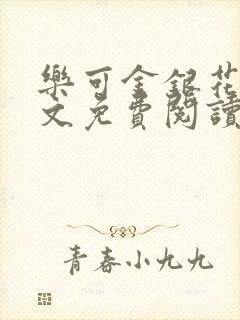 樂可金銀花
文免費閱讀
青春小九九